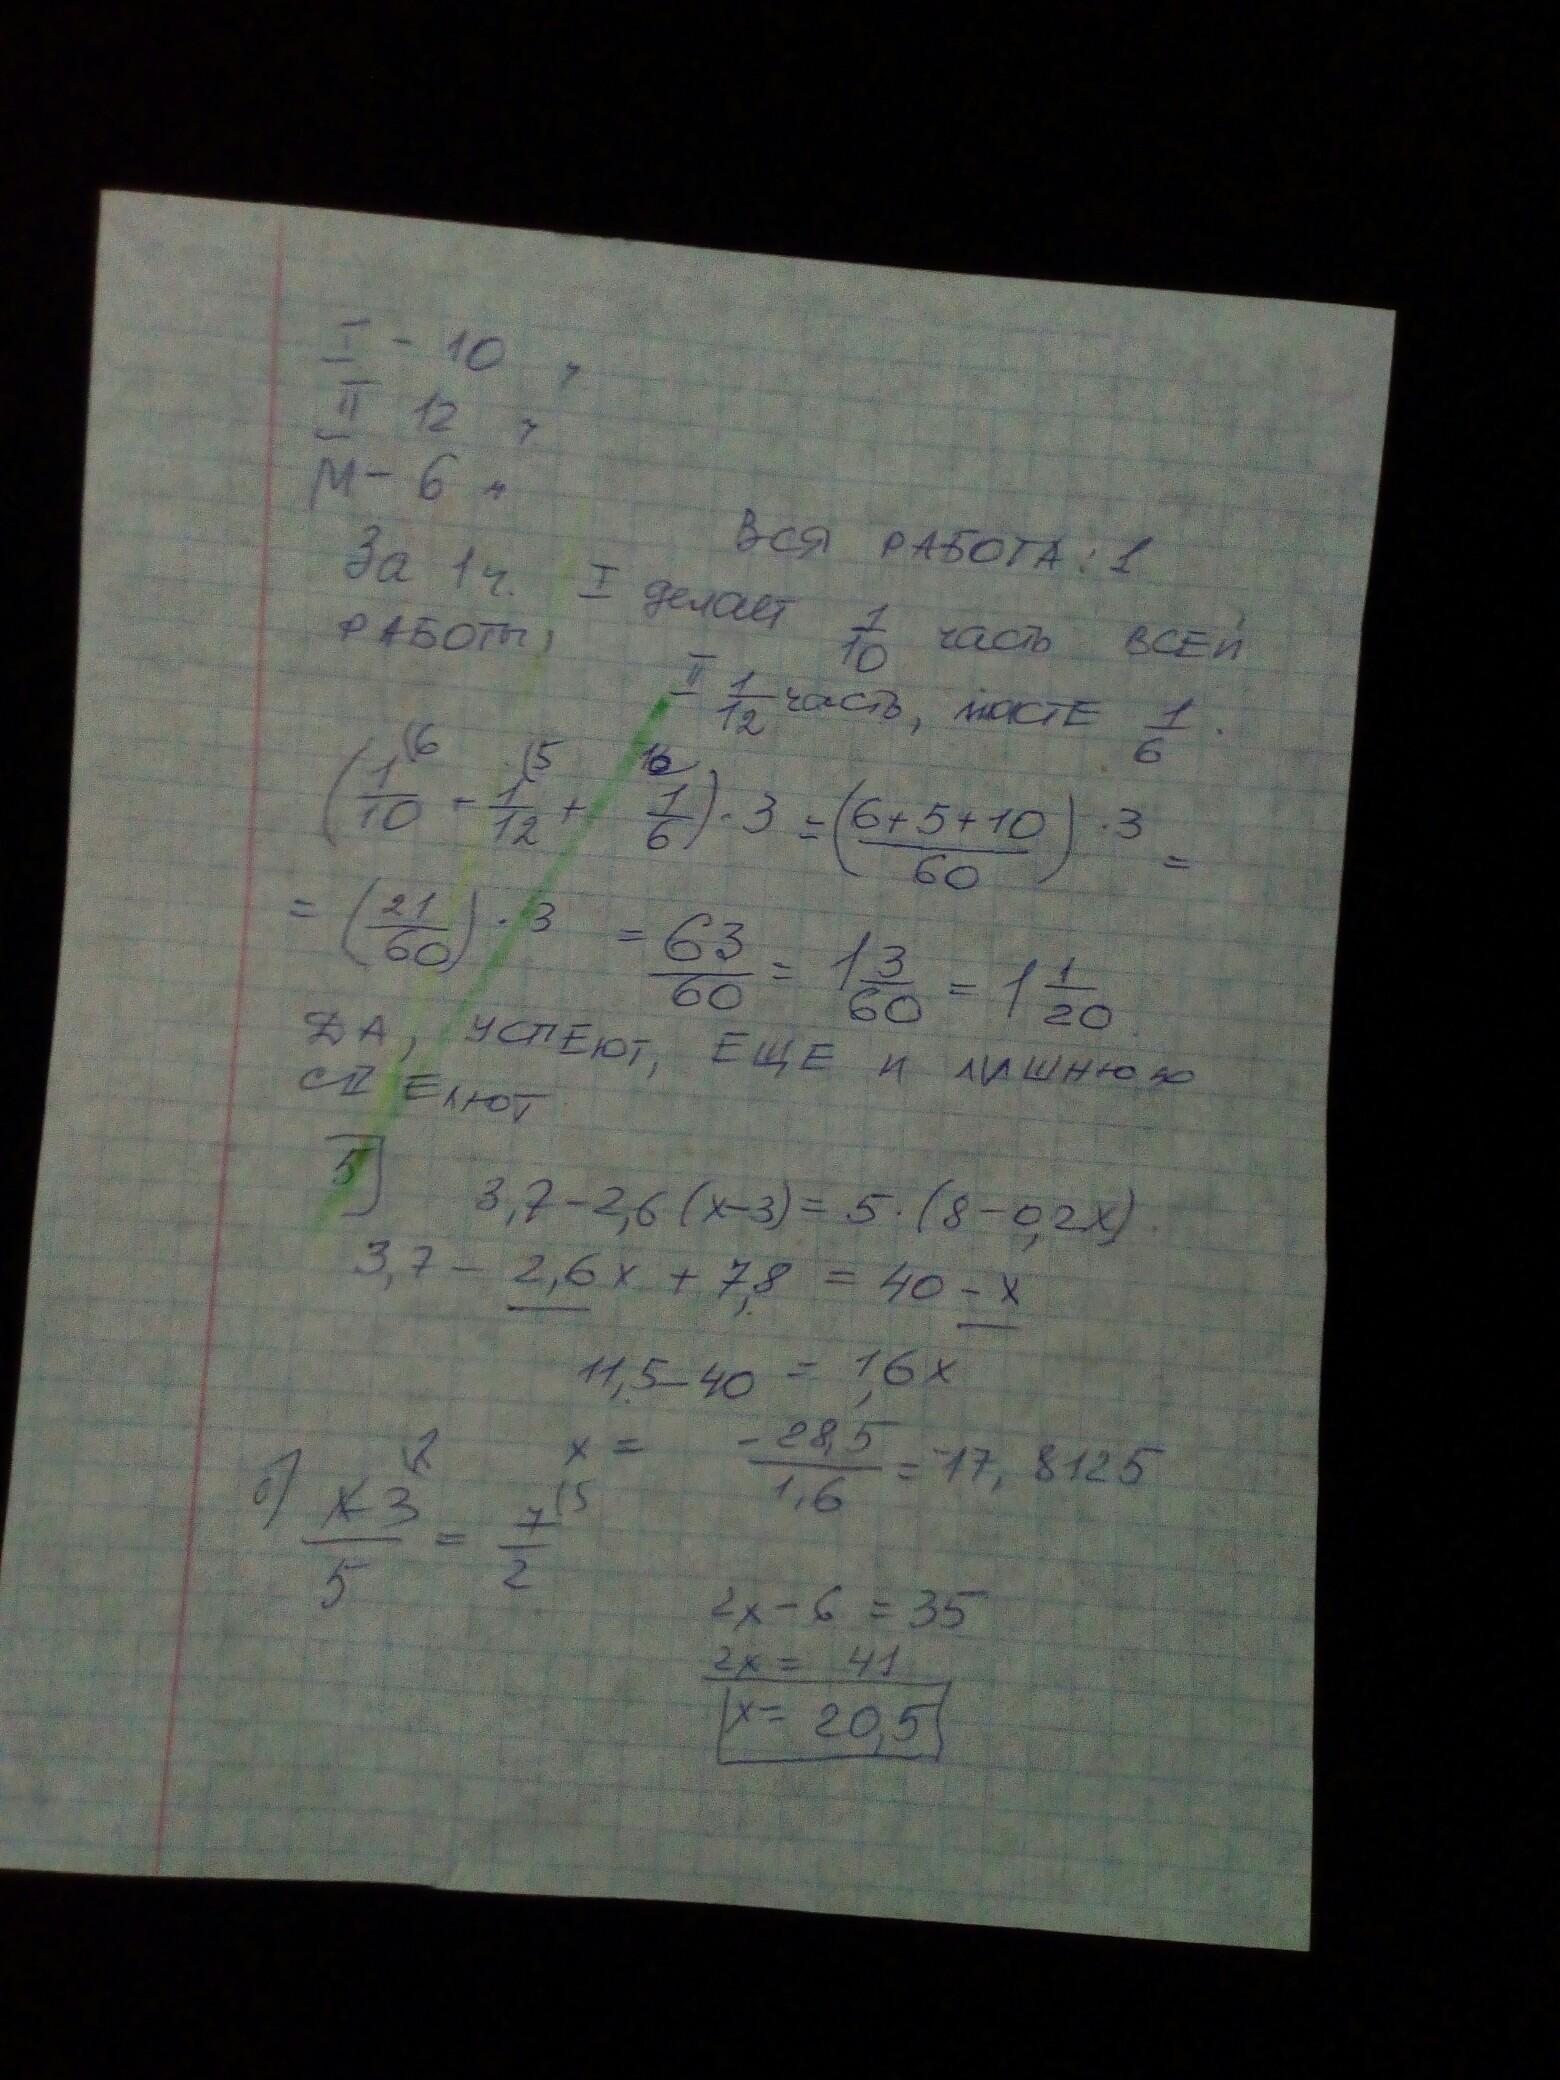 I - 10 ч
II 12 ч
М - 6 ч
Вся РАБОТА: 1
За 1ч. I делает 1/10 часть ВСЕЙ
РАБОТЫ,
II 1/12 часть, МАСТЕ 1/6.
(1/10 (6 + 1/12 (5 + 1/6 10) · 3 = (6+5+10/60) · 3 =
= (21/60) · 3 = 63/60 = 1 3/60 = 1 1/20
ДА, УСПЕЮТ, ЕЩЕ И ЛИШНЮЮ
5] 3,7 - 2,6 (x-3) = 5·(8-0,2x)
3,7 - 2,6x + 7,8 = 40 - x
11,5 - 40 = 1,6x
x = -28,5/1,6 = -17,8125
б) x-3/5 (2 = 7/2 (5
2x - 6 = 35
2x = 41
x = 20,5